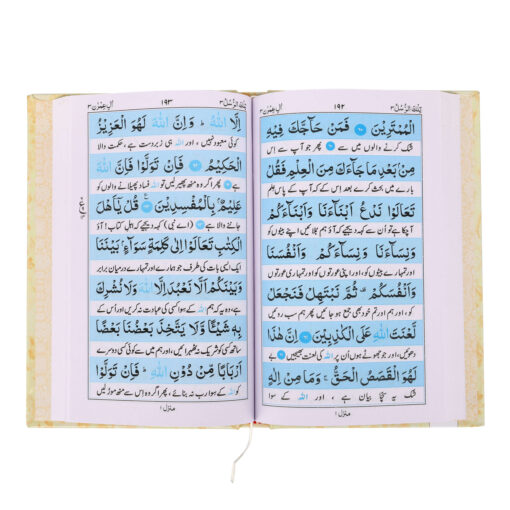 تِلْكَ الرُّسُلُ ٣ ١٩٢ اٰلِ عِمْرٰن ٣
الْمُمْتَرِيْنَ ۝ فَمَنْ حَآجَّكَ فِيْهِ
شک کرنے والوں میں سے پھر جو آپ سے اس
مِنْۢ بَعْدِ مَا جَآءَكَ مِنَ الْعِلْمِ فَقُلْ
بارے میں بحث کرے بعد اس کے کہ آپ کے پاس علم
تَعَالَوْا نَدْعُ اَبْنَآءَنَا وَاَبْنَآءَكُمْ
آچکا ہے تو ان سے کہہ دیجیے کہ آؤ ہم بلائیں اپنے بیٹوں کو
وَنِسَآءَنَا وَنِسَآءَكُمْ وَاَنْفُسَنَا
اور تمہارے بیٹوں کو، اور اپنی عورتوں کو اور تمہاری عورتوں کو
وَاَنْفُسَكُمْ ثُمَّ نَبْتَهِلْ فَنَجْعَلْ
اور ہم اور تم خود بھی جمع ہو جائیں پھر ہم سب
لَّعْنَتَ اللّٰهِ عَلَى الْكٰذِبِيْنَ ۝ اِنَّ هٰذَا
اور جو جھوٹے ہوں ان پر اللہ کی لعنت بھیجیں بے
لَهُوَ الْقَصَصُ الْحَقُّ ۚ وَمَا مِنْ اِلٰهٍ
شک یہ سچا بیان ہے ، اور اللہ کے سوا
منزل ١
١٩٣ اٰلِ عِمْرٰن ٣
اِلَّا اللّٰهُ ؕ وَاِنَّ اللّٰهَ لَهُوَ الْعَزِيْزُ
کوئی معبود نہیں ، اور اللہ ہی زبردست ہے، حکمت والا
الْحَكِيْمُ ۝ فَاِنْ تَوَلَّوْا فَاِنَّ اللّٰهَ
ہے پھر اگر وہ منھ پھیر لیں تو اللہ فساد پھیلانے والوں کو
عَلِيْمٌۢ بِالْمُفْسِدِيْنَ ۝ قُلْ يٰٓاَهْلَ
جاننے والا ہے (اے نبی) کہہ دیجیے کہ اہل کتاب! آؤ
الْكِتٰبِ تَعَالَوْا اِلٰى كَلِمَةٍ سَوَآءٍۢ بَيْنَنَا
ایک ایسی بات کی طرف جو ہمارے اور تمہارے درمیان برابر
وَبَيْنَكُمْ اَلَّا نَعْبُدَ اِلَّا اللّٰهَ وَلَا نُشْرِكَ
ہے، وہ یہ کہ ہم اللہ کے سوا کسی کی عبادت نہ کریں اور اس کے
بِهٖ شَيْـًٔا وَّلَا يَتَّخِذَ بَعْضُنَا بَعْضًا
ساتھ کسی کو شریک نہ ٹھہرائیں، اور ہم میں سے کوئی کسی دوسرے
اَرْبَابًا مِّنْ دُوْنِ اللّٰهِ ؕ فَاِنْ تَوَلَّوْا
کو اللہ کے سوا رب نہ بنائے ، پھر اگر وہ اس سے منھ موڑ لیں
منزل ١